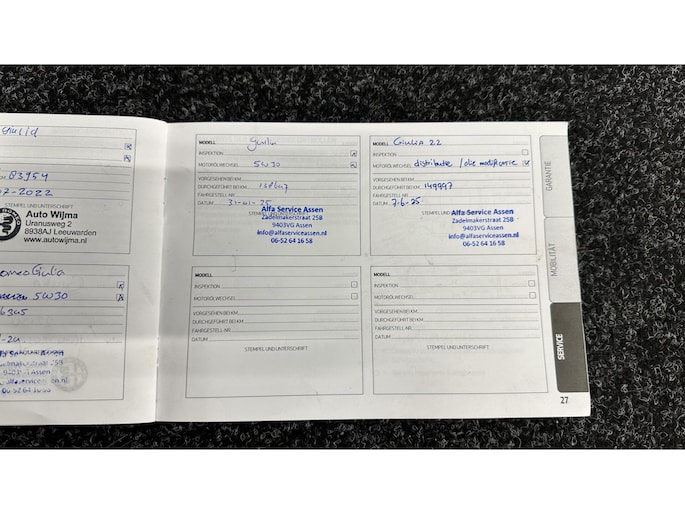 83954
-2022
Auto Wijma
Uranusweg 2
8938AJ Leeuwarden
www.autowijma.nl
Giulia
5W30
Assen
MODELL Giulia
INSPEKTION
MOTORÖLWECHSEL 5W30
VORGESEHEN BEI KM
DURCHGEFÜHRT BEI KM
FAHRGESTELL-NR
DATUM 31-01-25
STEMPEL UND UNTERSCHRIFT
Alfa Service Assen
Zadelmakerstraat 25B
9403VG Assen
info@alfaserviceassen.nl
06-52 64 16 58
MODELL Giulia 2.2
INSPEKTION
MOTORÖLWECHSEL distributie / olie modificatie
VORGESEHEN BEI KM
DURCHGEFÜHRT BEI KM 149997
FAHRGESTELL-NR
DATUM 7-6-25
STEMPEL UND
Alfa Service Assen
Zadelmakerstraat 25B
9403VG Assen
info@alfaserviceassen.nl
06-52 64 16 58
MODELL
INSPEKTION
MOTORÖLWECHSEL
VORGESEHEN BEI KM
DURCHGEFÜHRT BEI KM
FAHRGESTELL-NR
DATUM
STEMPEL UND UNTERSCHRIFT
MODELL
INSPEKTION
MOTORÖLWECHSEL
VORGESEHEN BEI KM
DURCHGEFÜHRT BEI KM
FAHRGESTELL-NR
DATUM
STEMPEL UND UNTERSCHRIFT
GARANTIE
MOBILITÄT
SERVICE
27